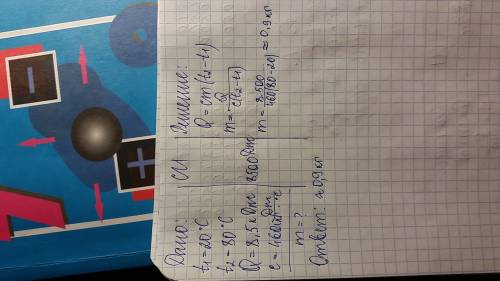 Дано:
t₁=20°C
t₂=80°C
Q=8,5кДж
c=460 Дж/кг·°C
m=?
СИ
8500Дж
Решение:
Q=cm(t₂-t₁)
m=Q/c(t₂-t₁)
m=8500/460(80-20)≈0,9кг
Ответ: ≈0,9 кг